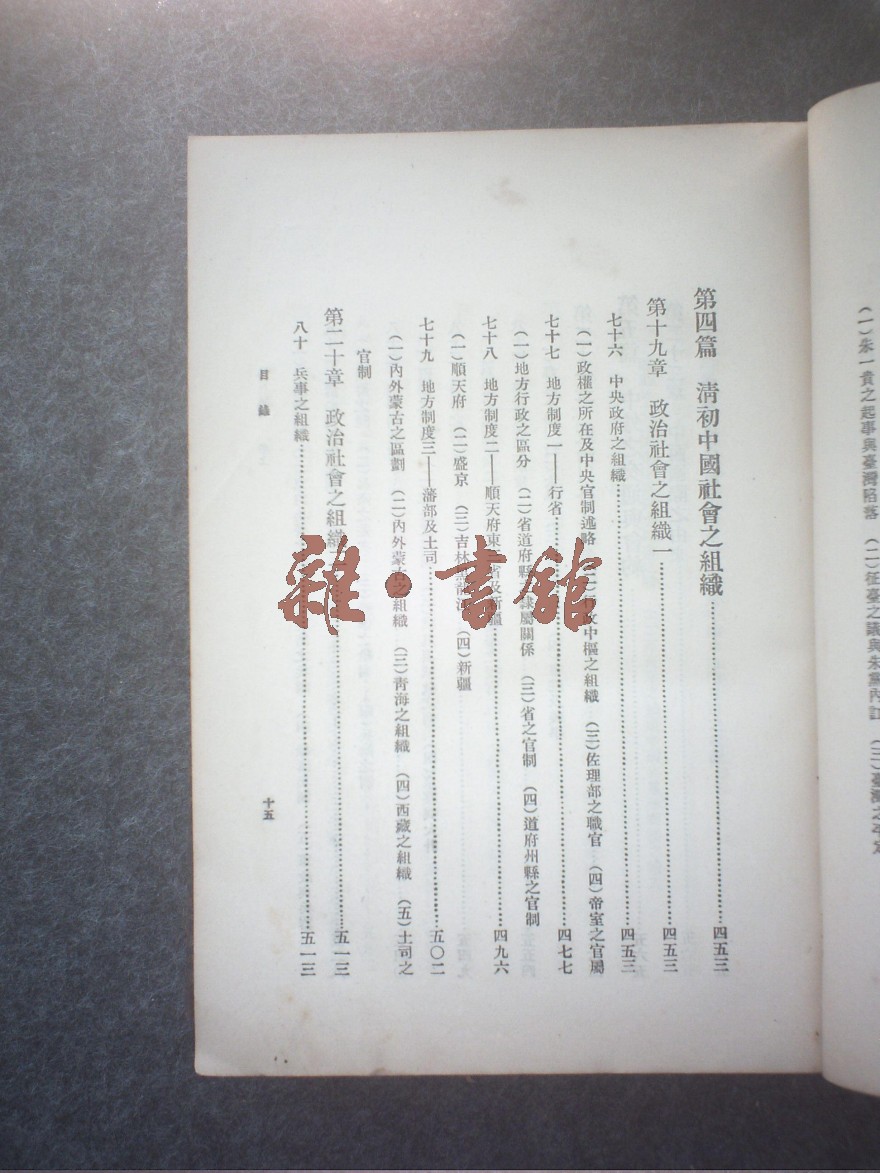 (一)朱一貴之起事與臺灣陷落 (二)征臺之議與朱黨內訌 (三)臺灣之平定
第四篇 淸初中國社會之組織……四五三
第十九章 政治社會之組織一……四五三
七十六 中央政府之組織……四五三
(一)政權之所在及中央官制述略 政中樞之組織 (三)佐理部之職官 (四)帝室之官屬
七十七 地方制度一——行省……四七七
(一)地方行政之區分 (二)省道府縣 隸屬關係 (三)省之官制 (四)道府州縣之官制
七十八 地方制度二——順天府東 省及新疆……四九六
(一)順天府 (二)盛京 (三)吉林 (四)新疆
七十九 地方制度三——藩部及土司……五〇二
(一)內外蒙古之區劃 (二)內外蒙古之組織 (三)靑海之組織 (四)西藏之組織 (五)土司之
官制
第二十章 政治社會之組織……五一三
八十 兵事之組織……五一三
目錄
十五
雜·書館